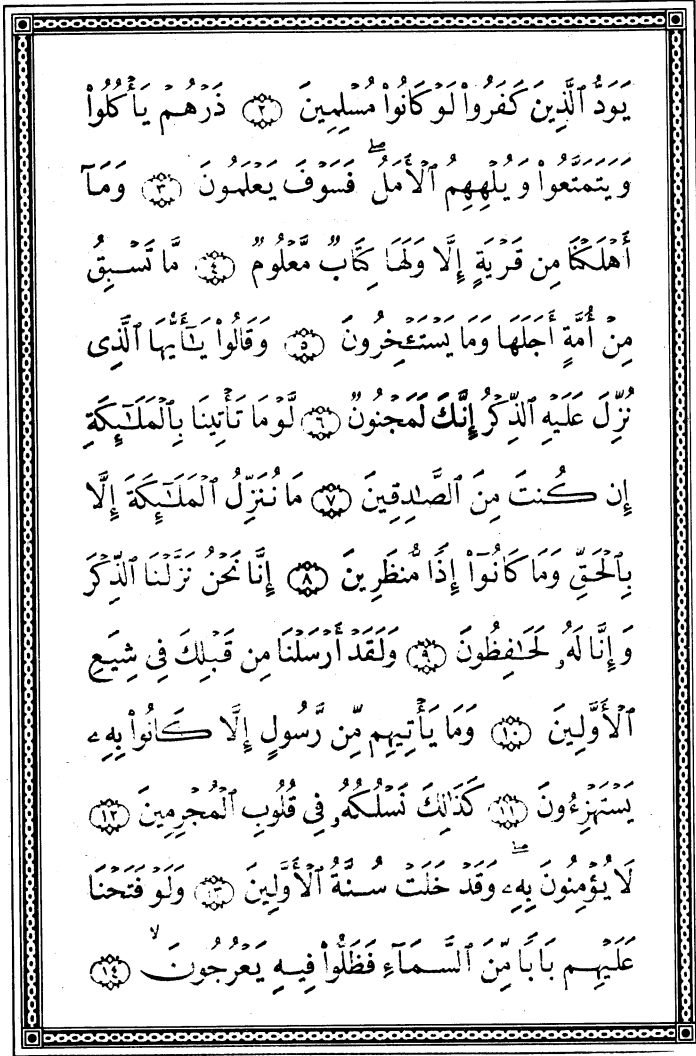 يَوَدُّ ٱلَّذِينَ كَفَرُواْ لَوْ كَانُواْ مُسْلِمِينَ ۝٢ ذَرْهُمْ يَأْكُلُواْ
وَيَتَمَتَّعُواْ وَيُلْهِهِمُ ٱلْأَمَلُ ۖ فَسَوْفَ يَعْلَمُونَ ۝٣ وَمَآ
أَهْلَكْنَا مِن قَرْيَةٍ إِلَّا وَلَهَا كِتَابٌ مَّعْلُومٌ ۝٤ مَّا تَسْبِقُ
مِنْ أُمَّةٍ أَجَلَهَا وَمَا يَسْتَـْٔخِرُونَ ۝٥ وَقَالُواْ يَـٰٓأَيُّهَا ٱلَّذِى
نُزِّلَ عَلَيْهِ ٱلذِّكْرُ إِنَّكَ لَمَجْنُونٌ ۝٦ لَّوْ مَا تَأْتِينَا بِٱلْمَلَـٰٓئِكَةِ
إِن كُنتَ مِنَ ٱلصَّـٰدِقِينَ ۝٧ مَا نُنَزِّلُ ٱلْمَلَـٰٓئِكَةَ إِلَّا
بِٱلْحَقِّ وَمَا كَانُوٓاْ إِذًا مُّنظَرِينَ ۝٨ إِنَّا نَحْنُ نَزَّلْنَا ٱلذِّكْرَ
وَإِنَّا لَهُۥ لَحَـٰفِظُونَ ۝٩ وَلَقَدْ أَرْسَلْنَا مِن قَبْلِكَ فِى شِيَعِ
ٱلْأَوَّلِينَ ۝١٠ وَمَا يَأْتِيهِم مِّن رَّسُولٍ إِلَّا كَانُواْ بِهِۦ
يَسْتَهْزِءُونَ ۝١١ كَذَٰلِكَ نَسْلُكُهُۥ فِى قُلُوبِ ٱلْمُجْرِمِينَ ۝١٢
لَا يُؤْمِنُونَ بِهِۦ ۖ وَقَدْ خَلَتْ سُنَّةُ ٱلْأَوَّلِينَ ۝١٣ وَلَوْ فَتَحْنَا
عَلَيْهِم بَابًا مِّنَ ٱلسَّمَآءِ فَظَلُّواْ فِيهِ يَعْرُجُونَ ۙ ۝١٤